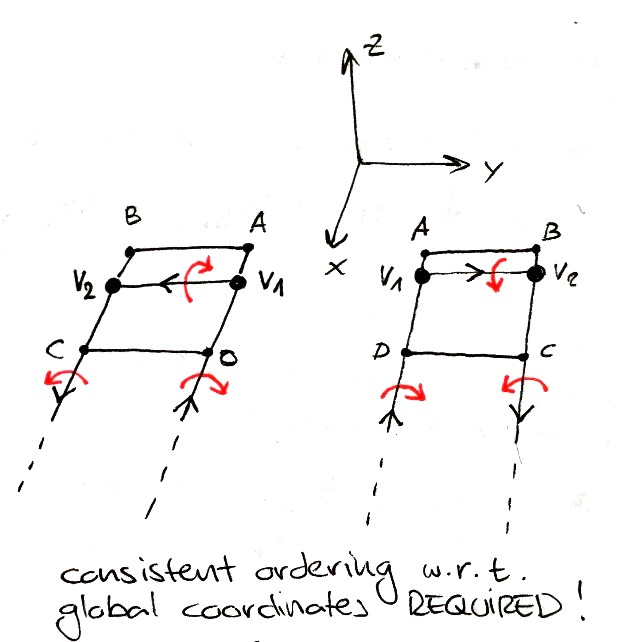 Z
Y
X
B A
V2 V1
C D
A B
V1 V2
D C
consistent ordering w.r.t.
global coordinates REQUIRED!